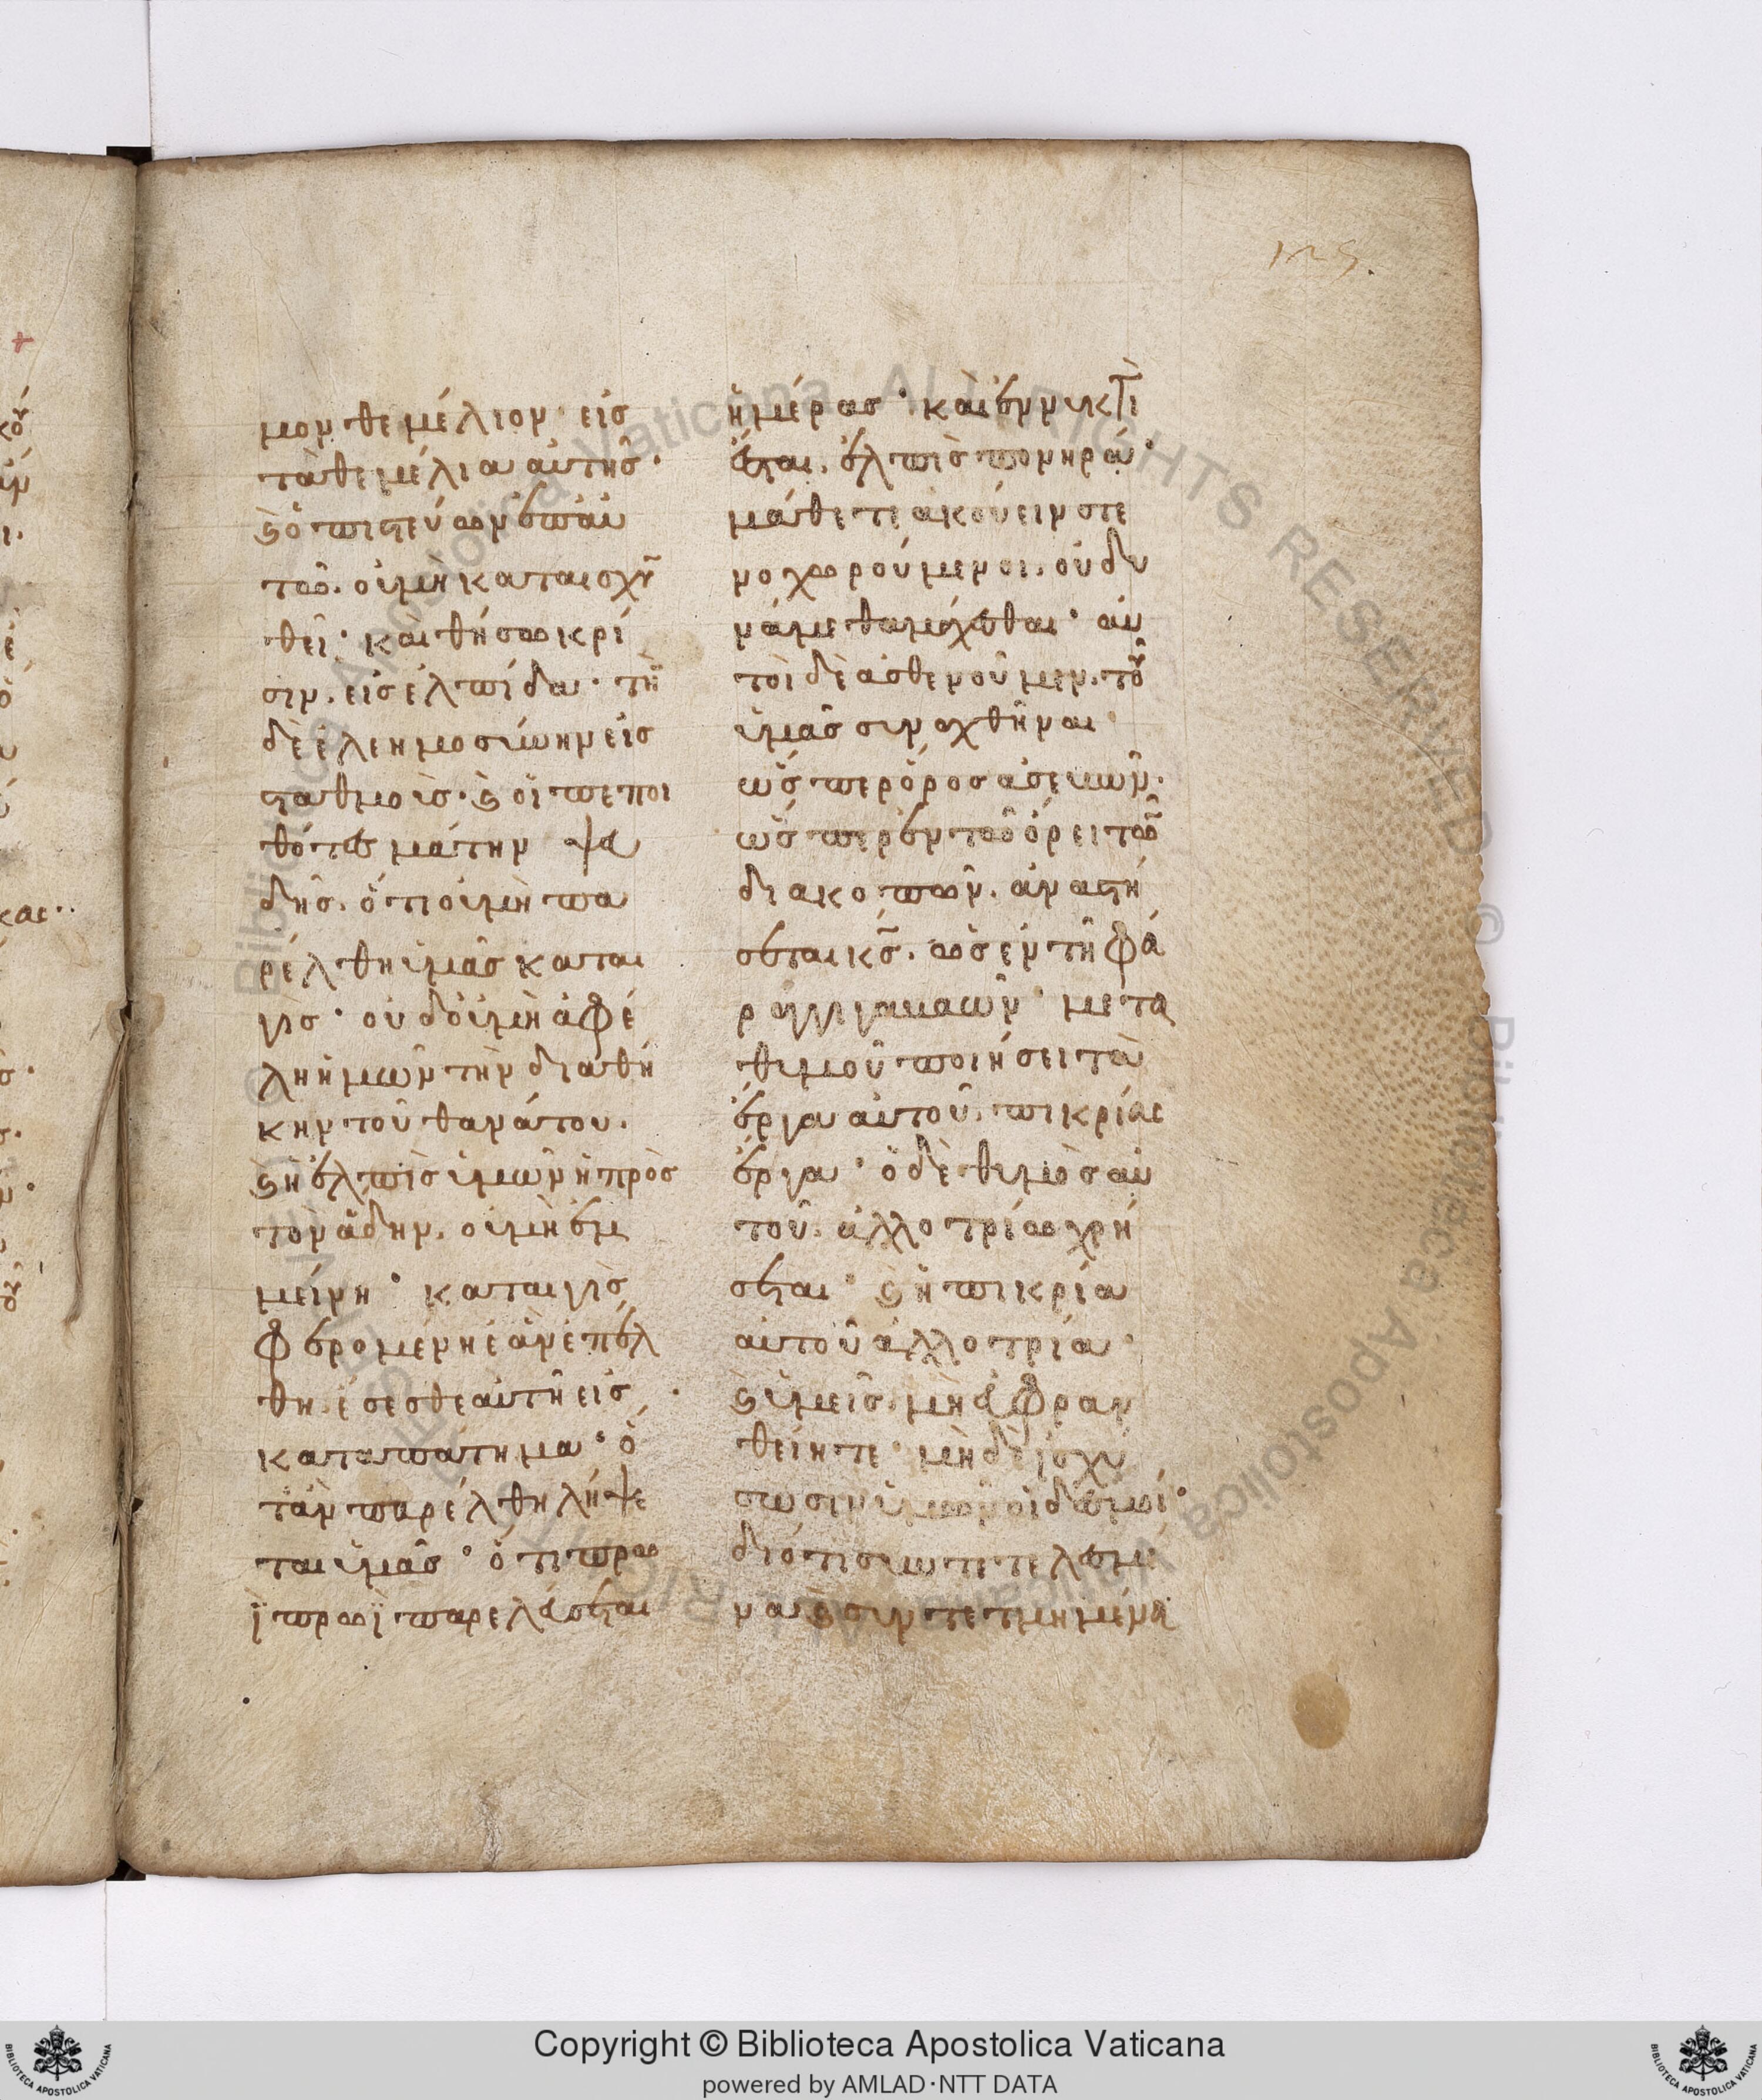 μον θεμέλιον· εἰσ
τὰ θεμέλια αὐτῆσ·
ϛ ὁ πιστεύων ἐπ αὐ
τῶ. οὐ μὴ καταισχυν
θεῖ· καὶ θήσω κρί
σιν. εἰσ ἐλπίδα· τὴ
δὲ ἐλεημοσύνην εἰσ
σταθμοὺσ· ϛ οἱ πεποι
θότεσ μάτην ψευ
δῆσ. ὅτι οὐ μὴ πα
ρέλθη ὑμᾶσ καται
γὶσ· οὐδ οὐ μὴ ἀφέ
λη ἡμῶν τὴν διαθή
κην τοῦ θανάτου.
ϛ ἡ ἐλπὶσ ὑμῶν ἡ πρὸσ
τὸν ἅδην. οὐ μὴ ἐμ
μείνη· καταιγὶσ
φερομένη ἐὰν ἐπέλ
θη. ἔσεσθε αὐτῆ εἰσ
καταπάτημα· ὅ
ταν παρέλθη λήψε
ται ὑμᾶσ· ὅτι πρωὶ
πρωὶ παρελεύσεται
ἡμέρασ· καὶ ἐν νυκτὶ
ἔσται. ἐλπὶσ πονηρά·
μάθετε ἀκούειν στε
νοχωρούμενοι. οὐ δυ
νάμεθα μάχεσθαι· αὐ
τοὶ δὲ ἀσθενοῦμεν. τοῦ
ὑμᾶσ συναχθῆναι·
ὥσπερ ὄροσ ἀσεβῶν.
ὥσπερ ἐν τῶ ὄρει τῶν
διακοπῶν. ἀναστή
σεται κσ. ὡσ ἐν τῆ φά
ραγγι γαβαὼν· μετὰ
θυμοῦ ποιήσει τὰ
ἔργα αὐτοῦ. πικρίασ
ἔργα· ὁ δὲ θυμὸσ αὐ
τοῦ. ἀλλοτρίωσ χρή
σεται· ϛ ἡ πικρία
αὐτοῦ ἀλλοτρία·
ϛ ὑμεῖσ. μὴ εὐφραν
θείητε· μηδὲ ἰσχύ
σωσιν ὑμῶν οἱ δεσμοί·
διότι συντετελεσμέ
να ϛ συντετμημένα